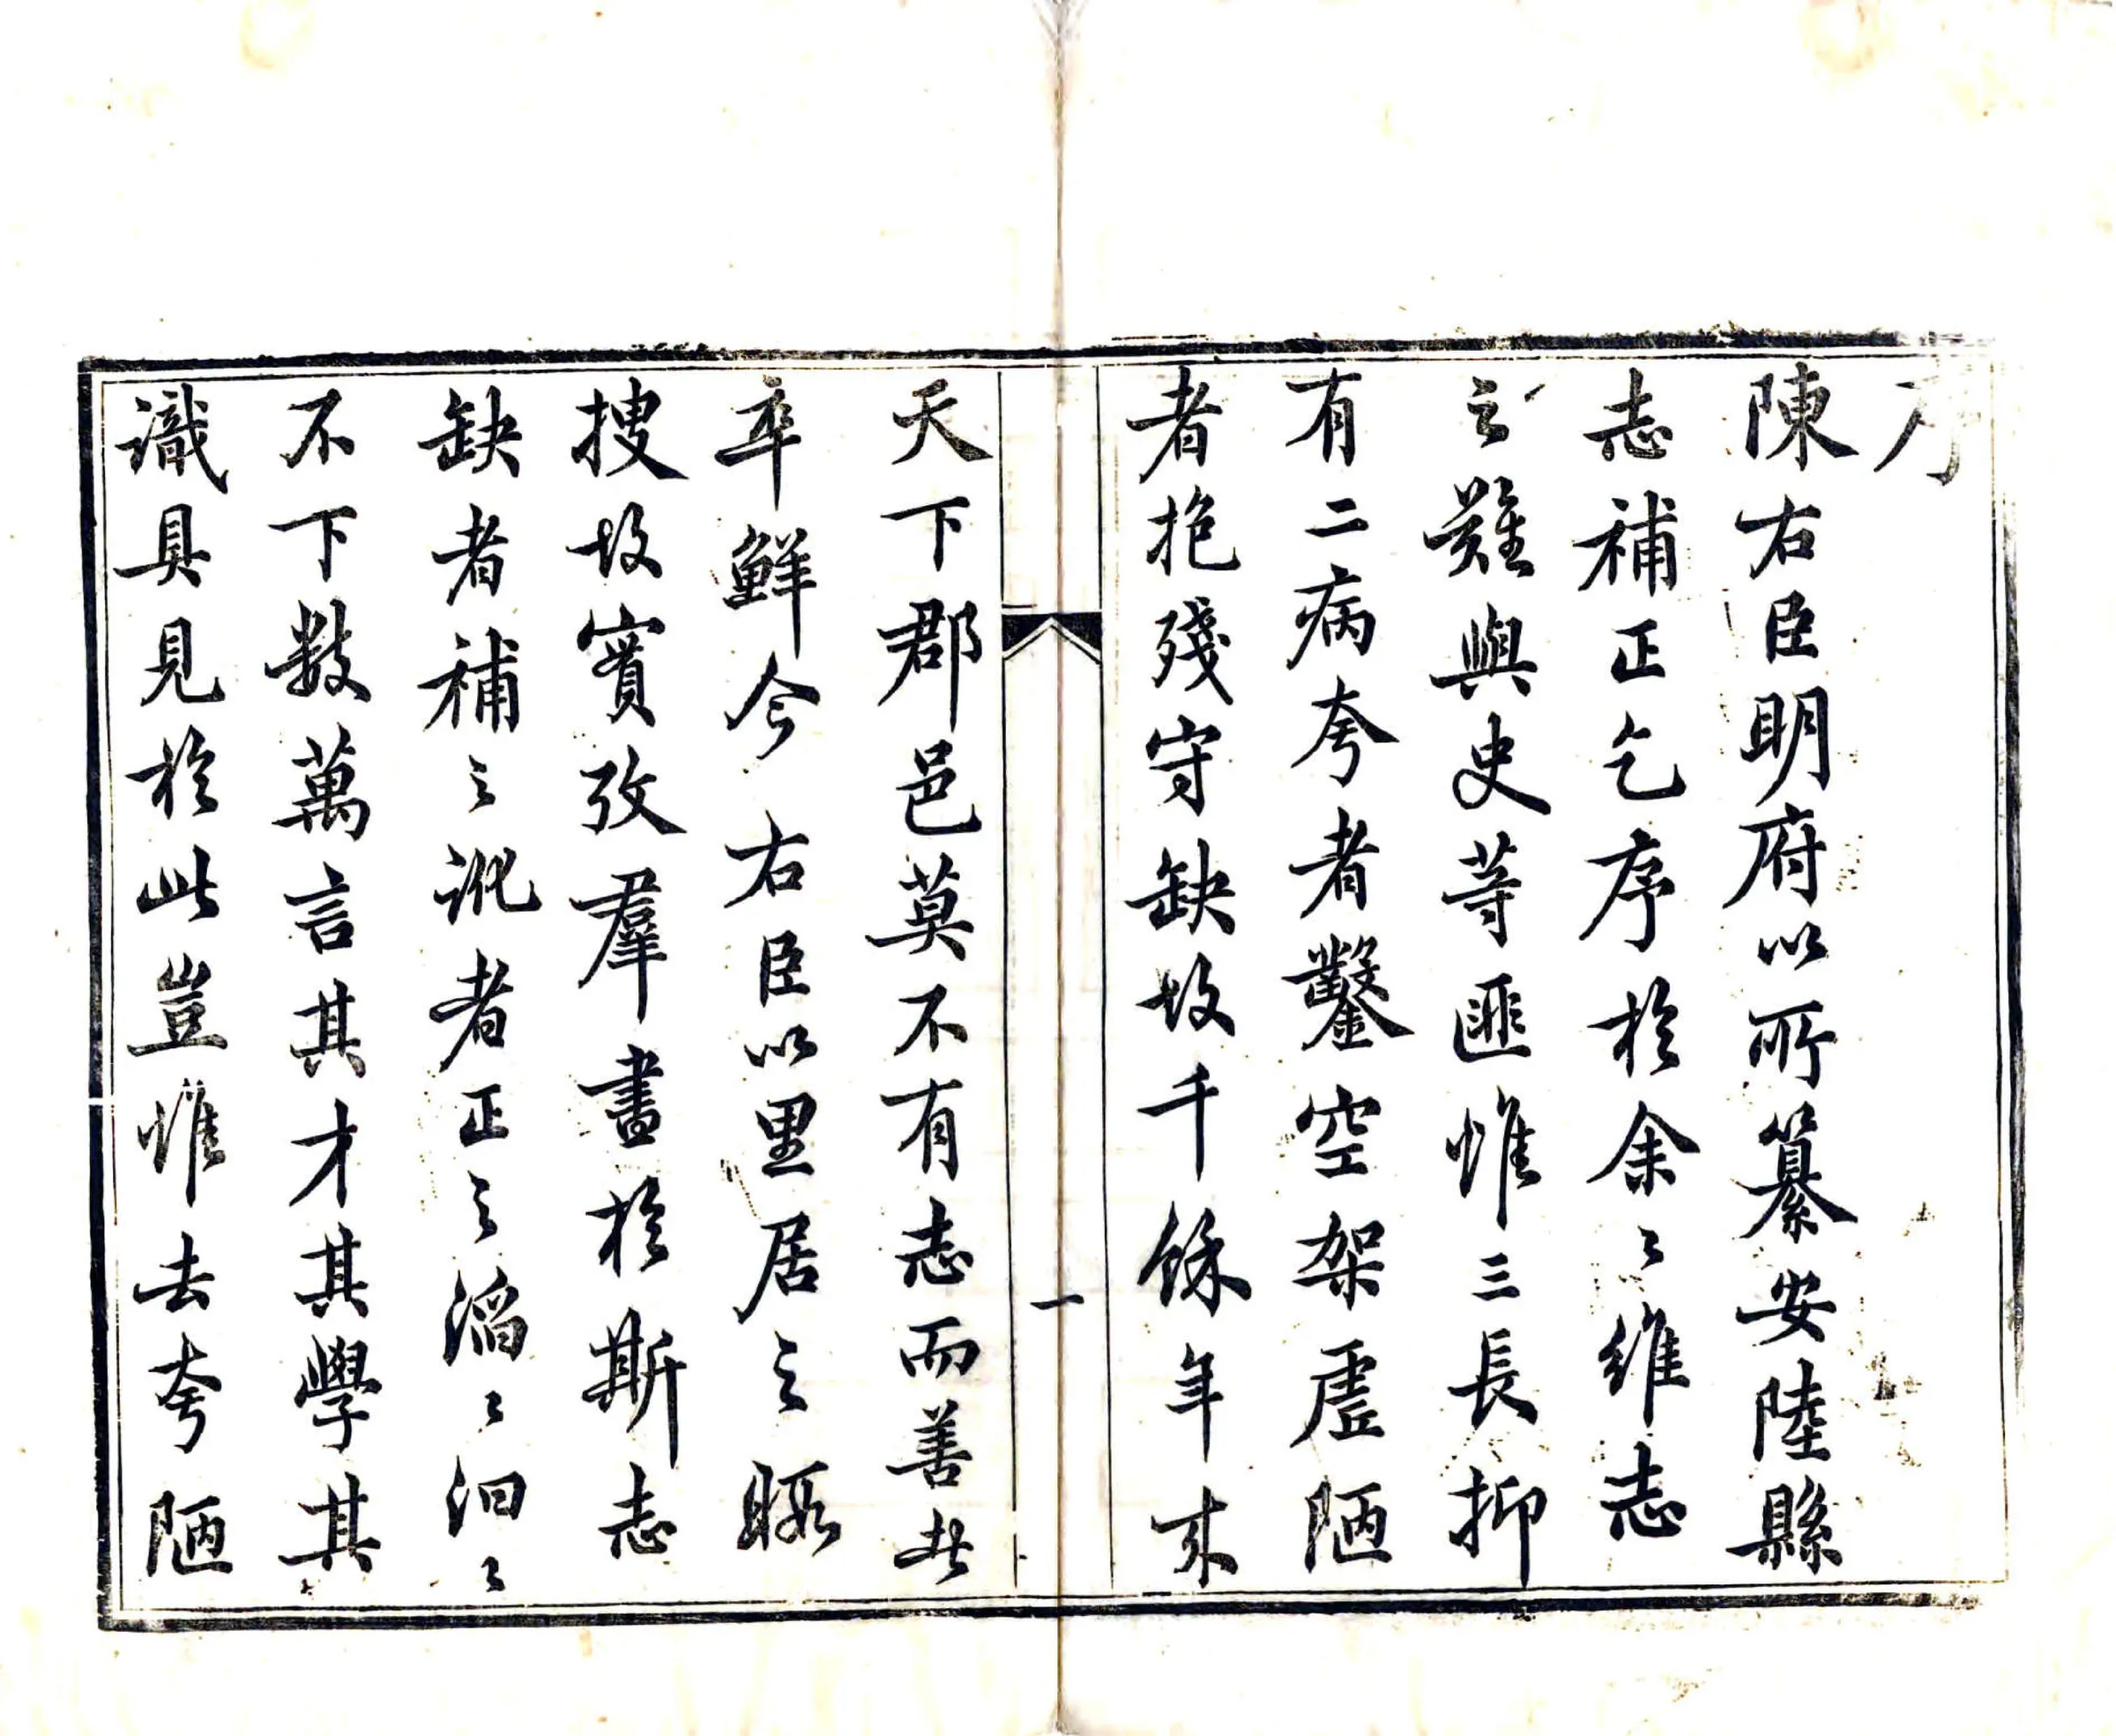 序
陳右臣明府以所纂安陸縣
志補正乞序於余〻維志
之難與史等匪惟三長抑
有二病夸者鑿空架虛陋
者抱殘守缺故千餘年來
一
天下郡邑莫不有志而善者
卒鮮今右臣以里居之暇
搜故實攷羣書於斯志
缺者補之訛者正之滔〻汩〻
不下數萬言其才其學其
識具見於此豈惟去夸陋